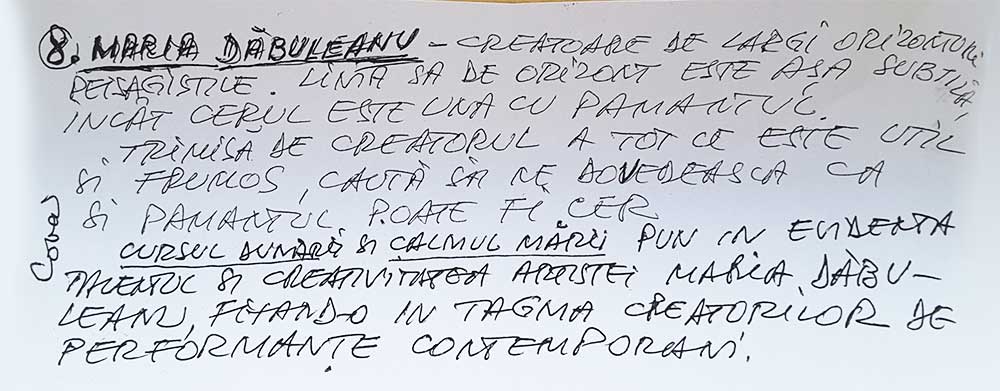 8. MARIA DĂBULEANU - CREATOARE DE LARGI ORIZONTURI
PEISAGISTICE. LINIA SA DE ORIZONT ESTE AȘA SUBTILĂ,
INCÂT CERUL ESTE UNA CU PAMANTUL.
TRIMISĂ DE CREATORUL A TOT CE ESTE UTIL
SI FRUMOS, CAUTĂ SĂ NE DOVEDEASCA CA
SI PAMANTUL POATE FI CER
CURSUL DUNARII SI CALMUL MĂRII PUN IN EVIDENTA
TALENTUL SI CREATIVITATEA ARTISTEI MARIA DĂBU-
LEANU, FIXAND-O IN TAGMA CREATORILOR DE
PERFORMANȚE CONTEMPORANI.